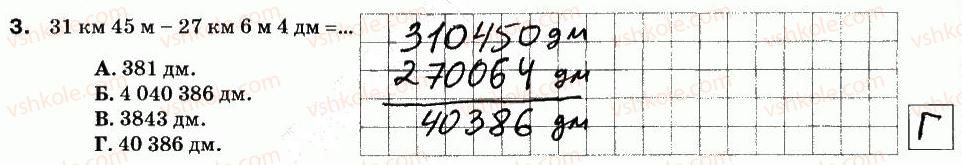 3. 31 км 45 м – 27 км 6 м 4 дм =...
А. 381 дм.
Б. 4 040 386 дм.
В. 3843 дм.
Г. 40 386 дм.
-310450 дм
270064 дм
40386 дм
Г